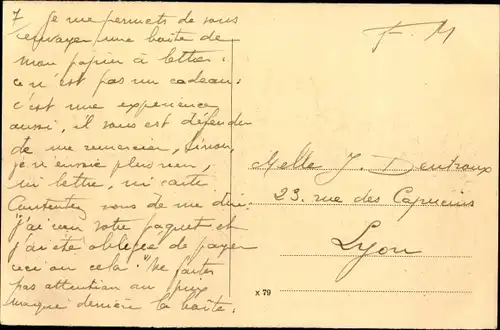 7 Je me permets de vous
envoyer une boîte de
mon papier à lettres :
ce n'est pas un cadeau :
c'est une expérience
aussi, il vous est défendu
de me remercier, sinon,
je n'envoie plus rien,
ni lettre, ni carte
Contentez vous de me dire :
"j'ai reçu votre paquet et
j'ai été obligée de payer
ceci ou cela." Ne faites
pas attention au prix
marqué derrière la boîte.
F. M
Melle J. Dentroux
23. rue des Capucins
Lyon
x 79